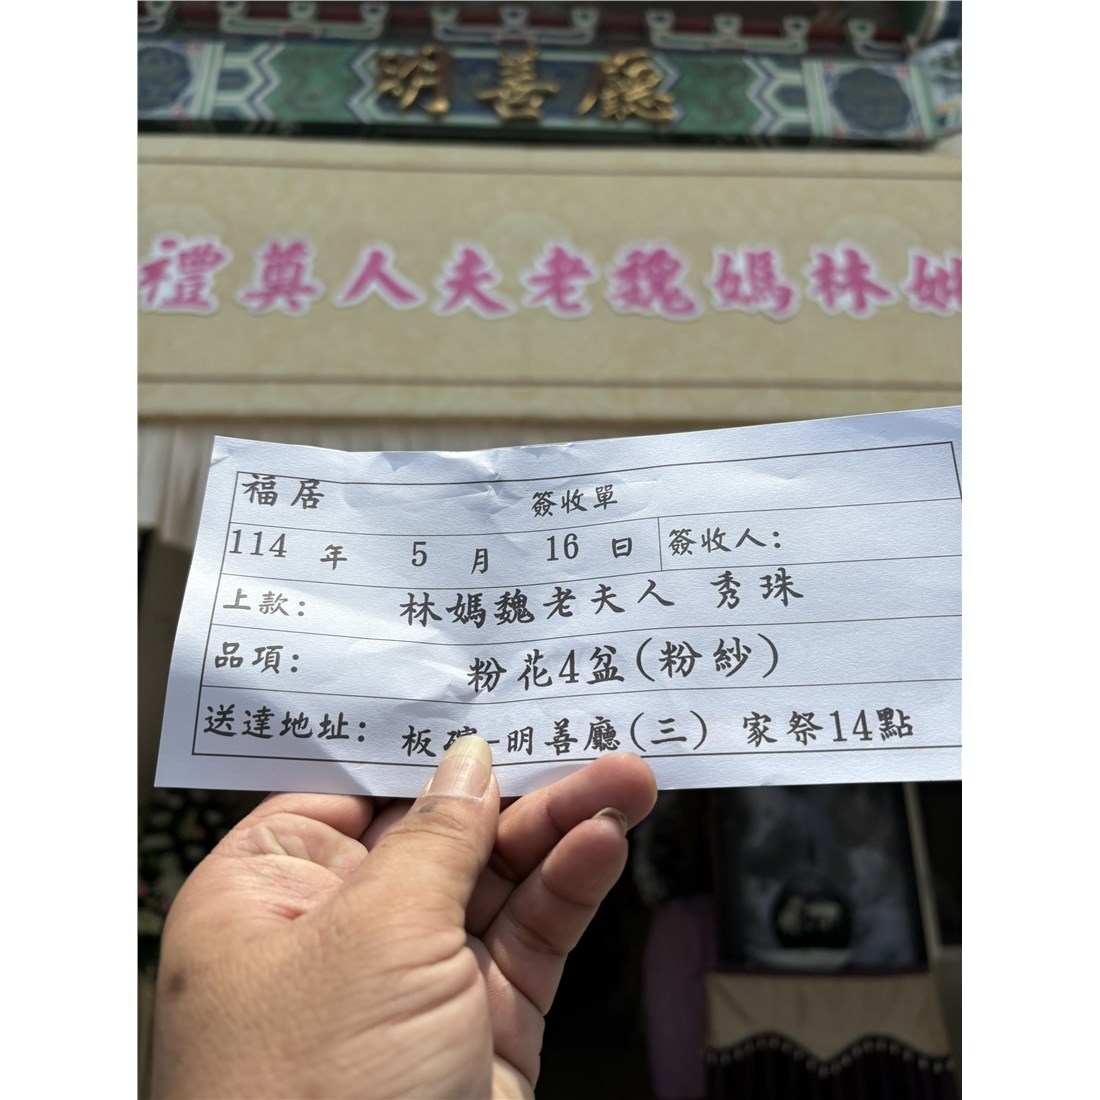 明善廳
禮奠人夫老魏媽林
福居 簽收單
114 年 5 月 16 日 簽收人:
上款: 林媽魏老夫人 秀珠
品項: 粉花4盆(粉紗)
送達地址: 板 -明善廳(三) 家祭14點